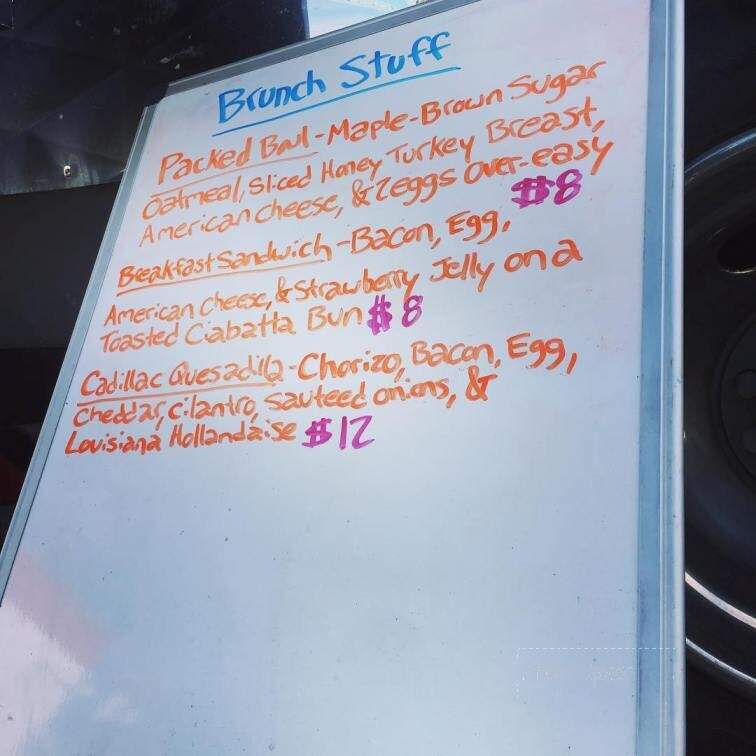 Brunch Stuff
Packed Bowl - Maple-Brown Sugar
Oatmeal, Sliced Honey Turkey Breast,
American Cheese, & 2eggs Over-easy
$8
Breakfast Sandwich - Bacon, Egg,
American Cheese, & Strawberry Jelly on a
Toasted Ciabatta Bun $8
Cadillac Quesadilla - Chorizo, Bacon, Egg,
Cheddar, Cilantro, Sauteed onions, &
Louisiana Hollandaise $12